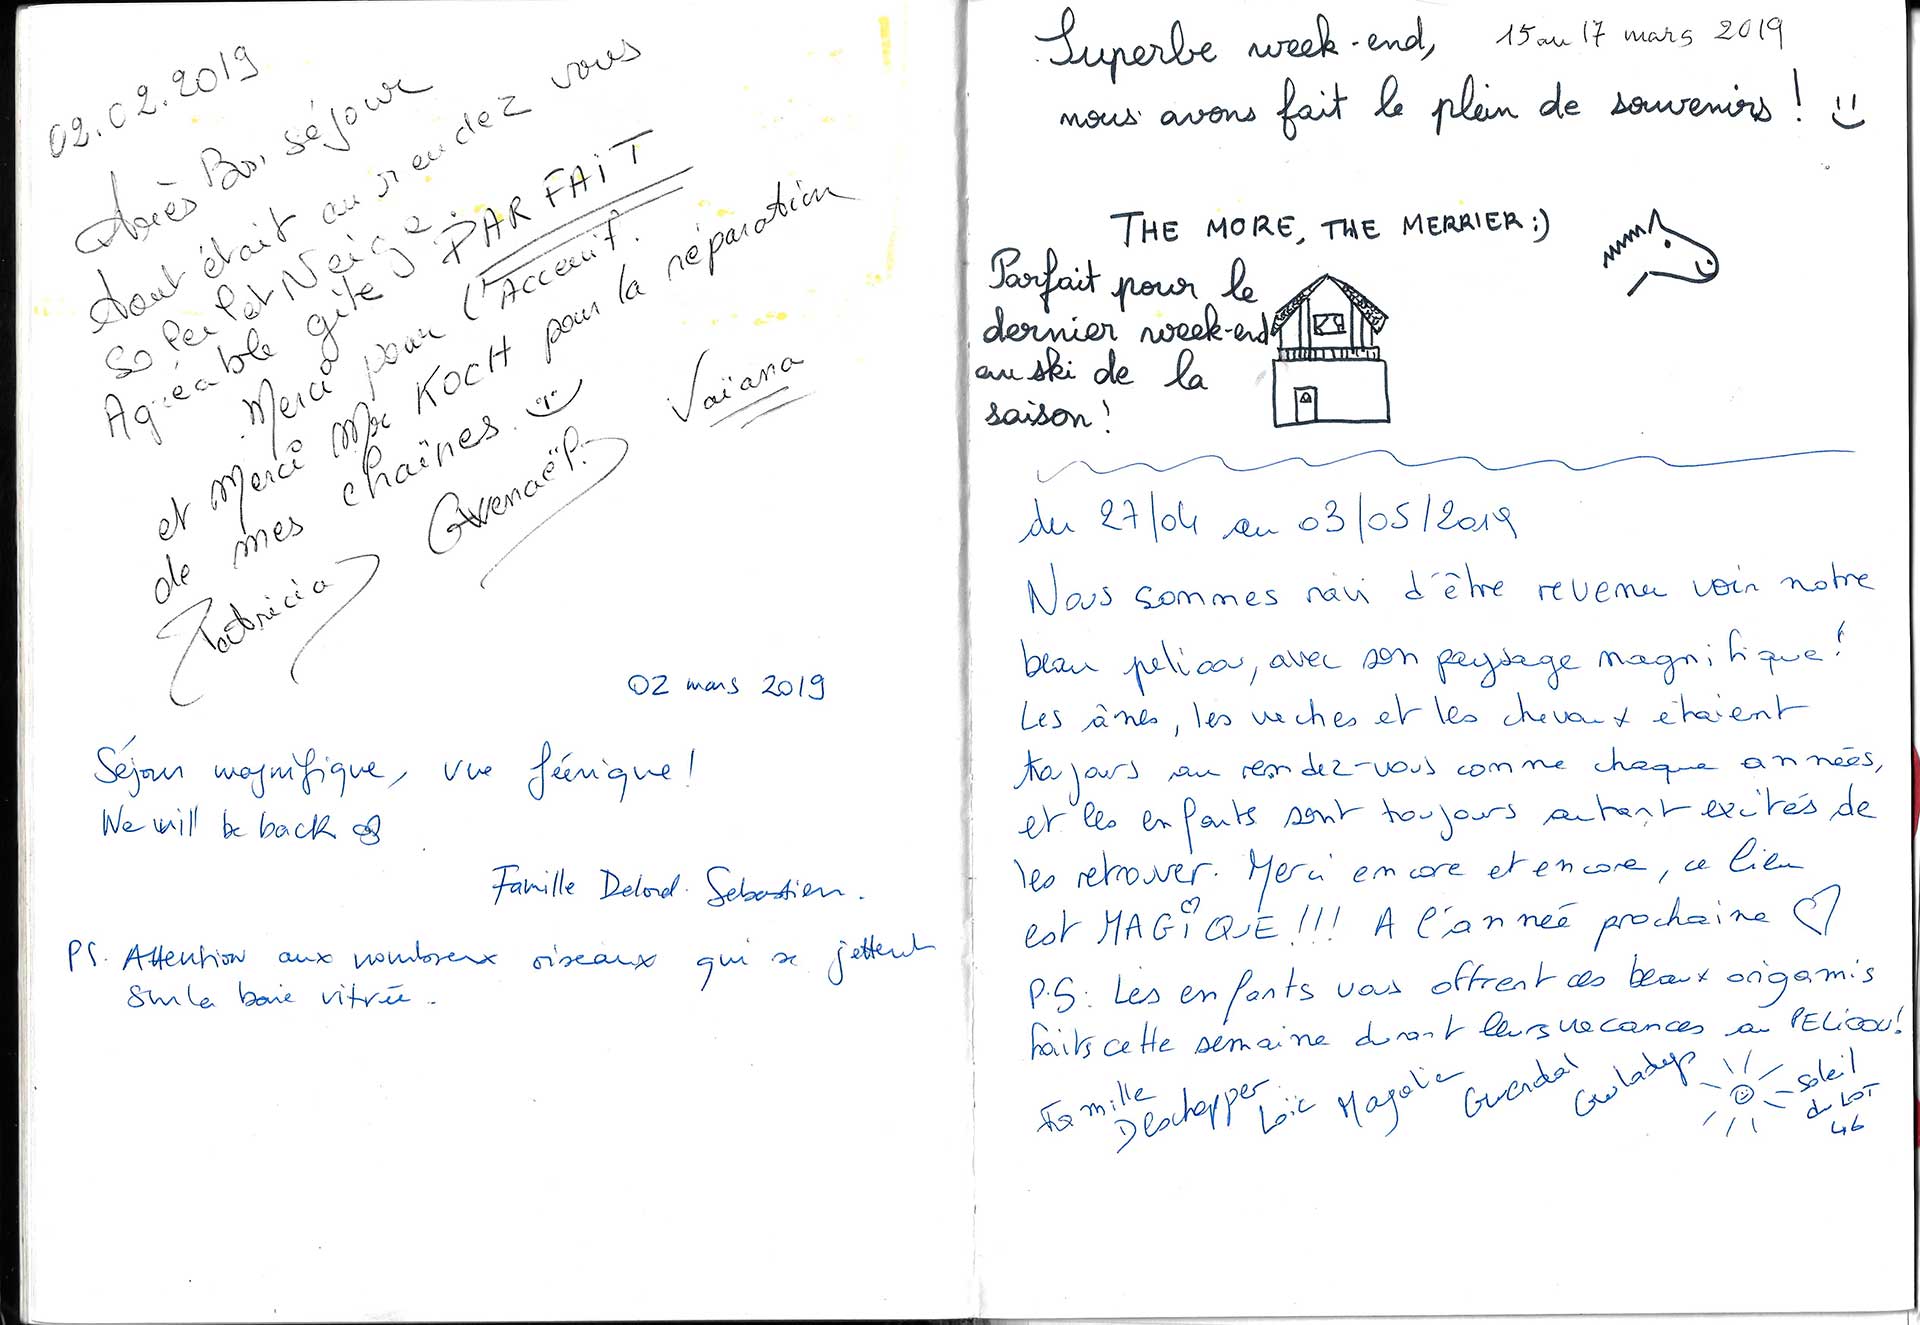 02.02.2019
Très Bon séjour
tout était au rendez vous
Soleil et Neige.
Agréable gîte, PARFAIT
Merci pour l'Accueil.
et Merci Mr KOCH pour la réparation
de mes chaînes.
Patricia Gwenaël. Vaïana
02 mars 2019
Séjour magnifique, vue féérique!
We will be back
Famille Delord. Sebastien.
PS. Attention aux nombreux oiseaux qui se jettent
sur la baie vitrée.
Superbe week-end, 15 au 17 mars 2019
nous avons fait le plein de souvenirs !
THE MORE, THE MERRIER :)
Parfait pour le
dernier week-end
au ski de la
saison!
du 27/04 au 03/05/2019
Nous sommes ravi d'être revenu voir notre
beau pelicou, avec son paysage magnifique!
Les ânes, les vaches et les chevaux étaient
toujours au rendez-vous comme chaque années,
et les enfants sont toujours autant excités de
les retrouver. Merci encore et encore, ce lieu
est MAGiQUE!!! A l'anneé prochaine
P.S: Les enfants vous offrent ces beaux origamis
faits cette semaine durant leurs vacances au PELICOU!
Famille Deschepper Loïc Magalie Gwendal Gwladys soleil
du LOT
46